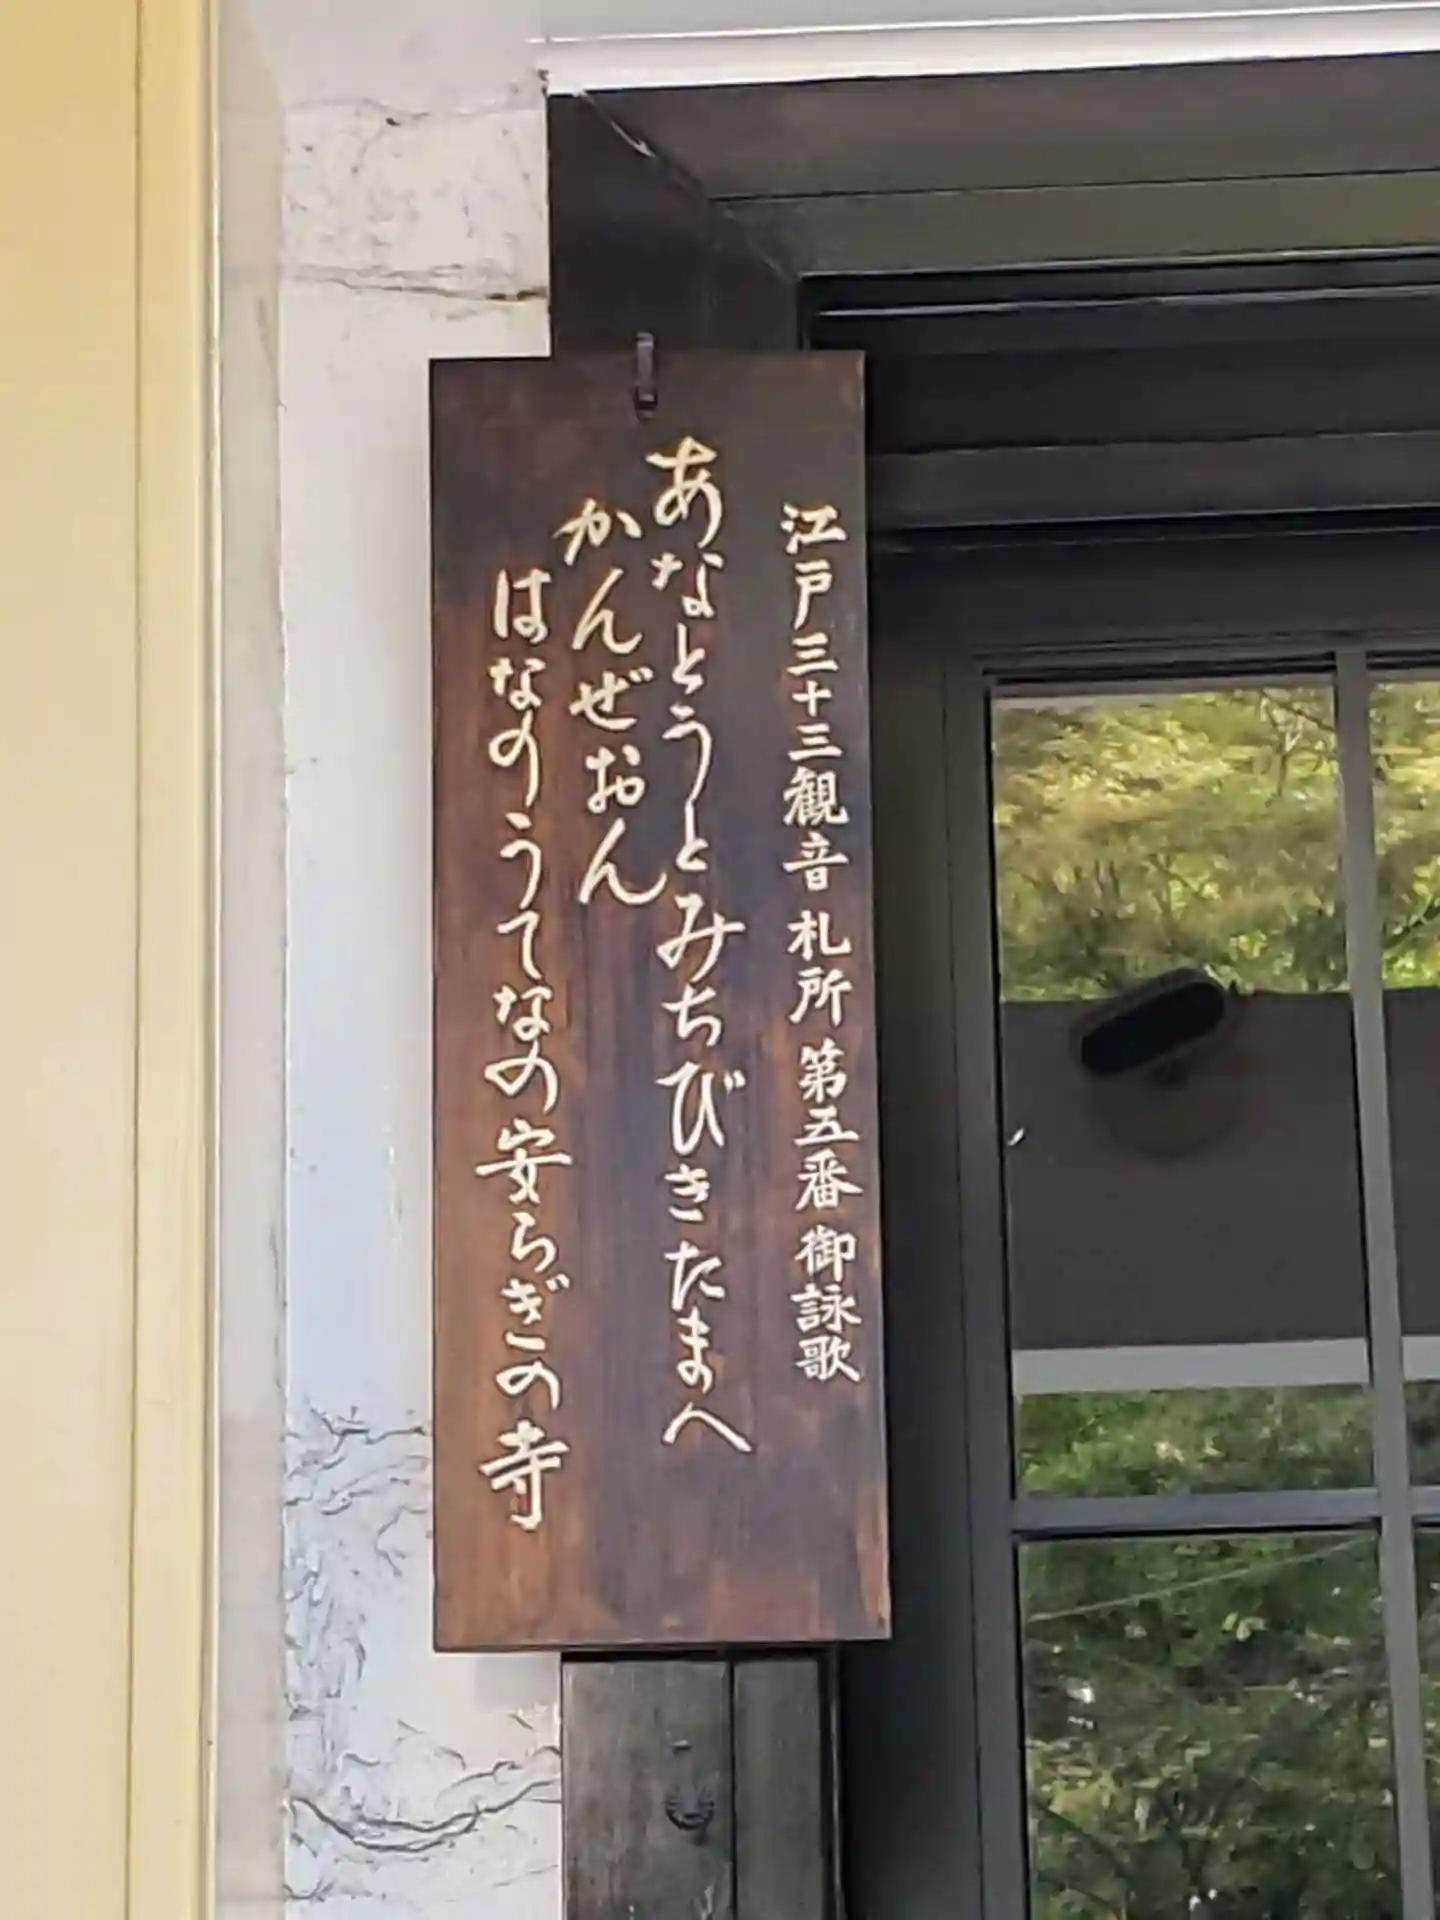 江戸三十三観音札所第五番御詠歌
あなとうとみちびきたまへ
かんぜおん
はなのうてなの安らぎの寺